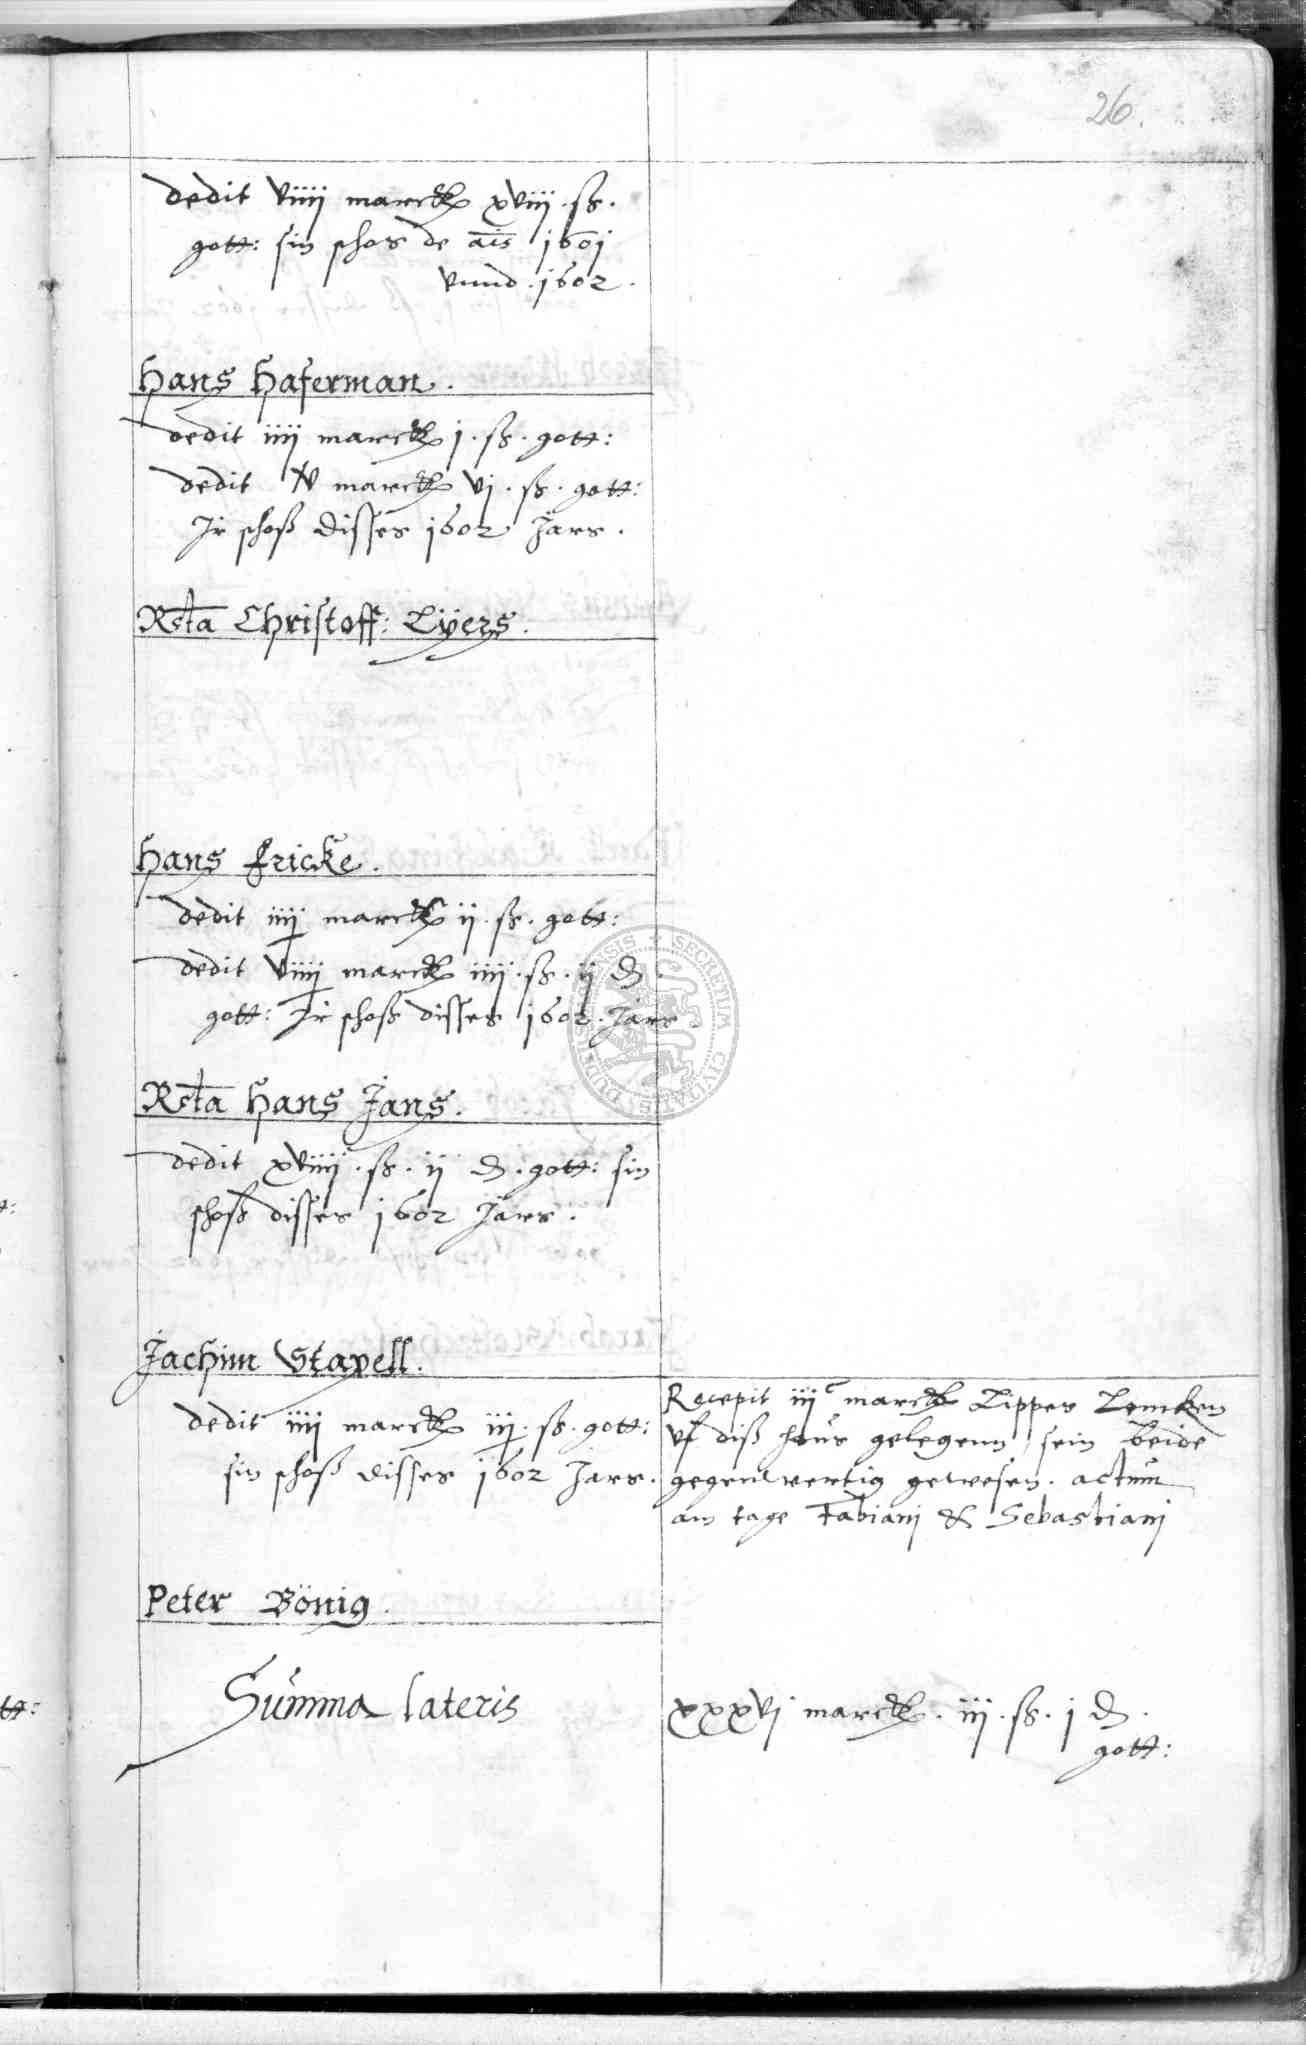 26.
dedit viiij marck xviij. ß.
gott: sin schos de ais 1601
vnnd. 1602.
Hans Haferman.
dedit iiij marck j. ß. gott:
dedit v marck vj. ß. gott:
Jr schoß disses 1602 Jars.
Rcta Christoff: Lÿers.
Hans fricke.
dedit iiij marck ij. ß. gott:
dedit viiij marck iiij. ß. ij ₰.
gott: Jr schoß disses 1602. Jars.
Rcta Hans Jans.
dedit xviiij. ß. ij ₰. gott: sin
schoß disses 1602 Jars.
Jachim Stapell.
dedit iiij marck iij. ß. gott:
sin schoß disses 1602 Jars.
Recepit iij c marck Lippes Lemken
vf diß haus gelegenn, sein beide
gegenwertig gewesen. actum
am tage Fabianj & Sebastianj
Peter Bönig.
Summa lateris
xxxvj marck. iij. ß. j ₰.
gott:
SECRETUM CIVITATIS DUDERSTADENSIS